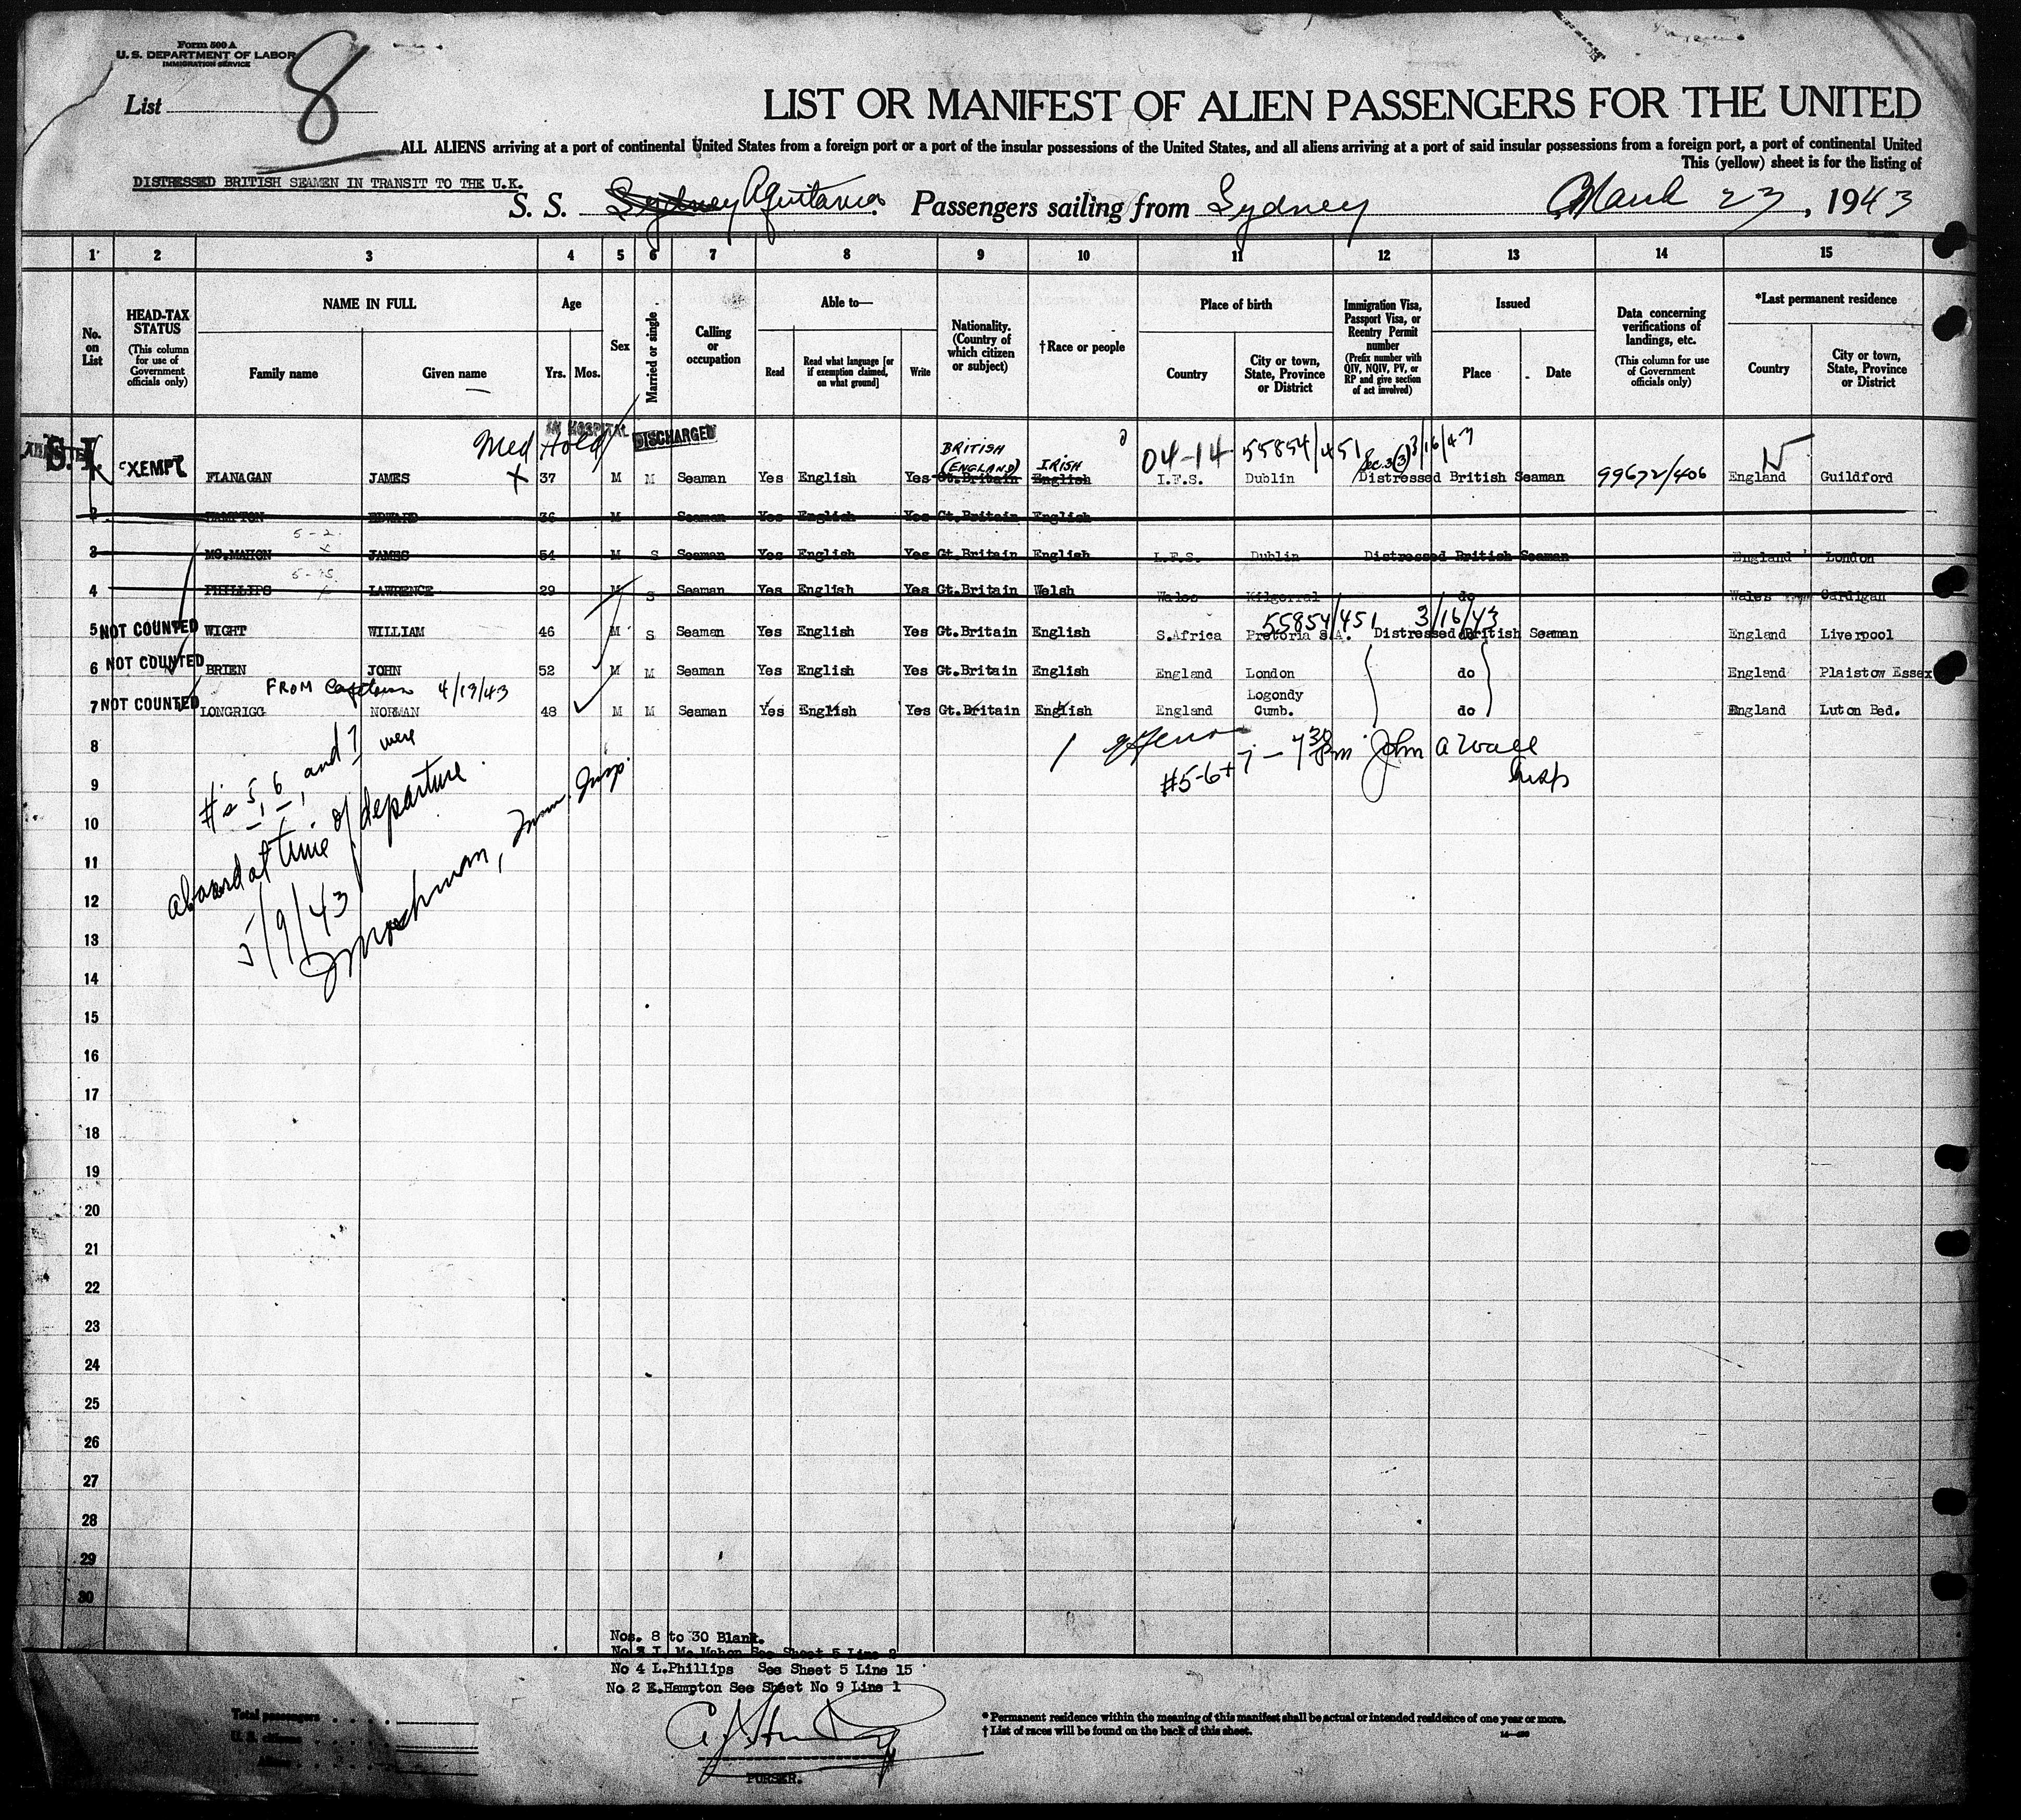 Form 500 A
U. S. DEPARTMENT OF LABOR
IMMIGRATION SERVICE
List 8
LIST OR MANIFEST OF ALIEN PASSENGERS FOR THE UNITED
ALL ALIENS arriving at a port of continental United States from a foreign port or a port of the insular possessions of the United States, and all aliens arriving at a port of said insular possessions from a foreign port, a port of continental United
This (yellow) sheet is for the listing of
DISTRESSED BRITISH SEAMEN IN TRANSIT TO THE U.K.
S. S. Sydney Aquitania. Passengers sailing from Sydney March 23, 1943
1 2 3 4 5 6 7 8 9 10 11 12 13 14 15
No. on List
HEAD-TAX STATUS
(This column for use of Government officials only)
NAME IN FULL
Family name
Given name
Age
Yrs. Mos.
Sex
Married or single
Calling or occupation
Able to—
Read
Read what language [or if exemption claimed, on what ground]
Write
Nationality. (Country of which citizen or subject)
†Race or people
Place of birth
Country
City or town, State, Province or District
Immigration Visa, Passport Visa, or Reentry Permit number
(Prefix number with QIV, NQIV, PV, or RP and give section of act involved)
Issued
Place
Date
Data concerning verifications of landings, etc.
(This column for use of Government officials only)
*Last permanent residence
Country
City or town, State, Province or District
Med Hold IN HOSPITAL DISCHARGED
BRITISH (ENGLAND) IRISH 04-14 55854/451 Sec. 3(3) 3/16/43
S.I. EXEMPT FLANAGAN JAMES X 37 M M Seaman Yes English Yes Gt.Britain English I.F.S. Dublin Distressed British Seaman 99672/406 England Guildford
2 HAMPTON EDWARD 36 M Seaman Yes English Yes Gt.Britain English
5-2
3 MC.MAHON JAMES 54 M S Seaman Yes English Yes Gt.Britain English I.F.S. Dublin Distressed British Seaman England London
5-15
4 PHILLIPS LAWRENCE 29 M S Seaman Yes English Yes Gt.Britain Welsh Wales Kilgerral do Wales Cardigan
55854/451 3/16/43
5 NOT COUNTED WIGHT WILLIAM 46 M S Seaman Yes English Yes Gt.Britain English S.Africa Pretoria S.A. Distressed British Seaman England Liverpool
6 NOT COUNTED BRIEN JOHN 52 M M Seaman Yes English Yes Gt.Britain English England London do England Plaistow Essex
FROM Capetown 4/13/43
7 NOT COUNTED LONGRIGG NORMAN 48 M M Seaman Yes English Yes Gt.Britain English England Logondy Cumb. do England Luton Bed.
8
9
10
11
12
13
14
15
16
17
18
19
20
21
22
23
24
25
26
27
28
29
30
#5-6+7 - 7 30 pm John A Wall
Insp
#'s 5, 6, and 7 were
aboard at time of departure.
5/9/43
Moshman, Imm. Insp.
Nos. 8 to 30 Blank.
No 3 J. Mc.Mahon See Sheet 5 Line 2
No 4 L.Phillips See Sheet 5 Line 15
No 2 E.Hampton See Sheet No 9 Line 1
PURSER.
Total passengers
U. S. citizens
Aliens
* Permanent residence within the meaning of this manifest shall be actual or intended residence of one year or more.
† List of races will be found on the back of this sheet.